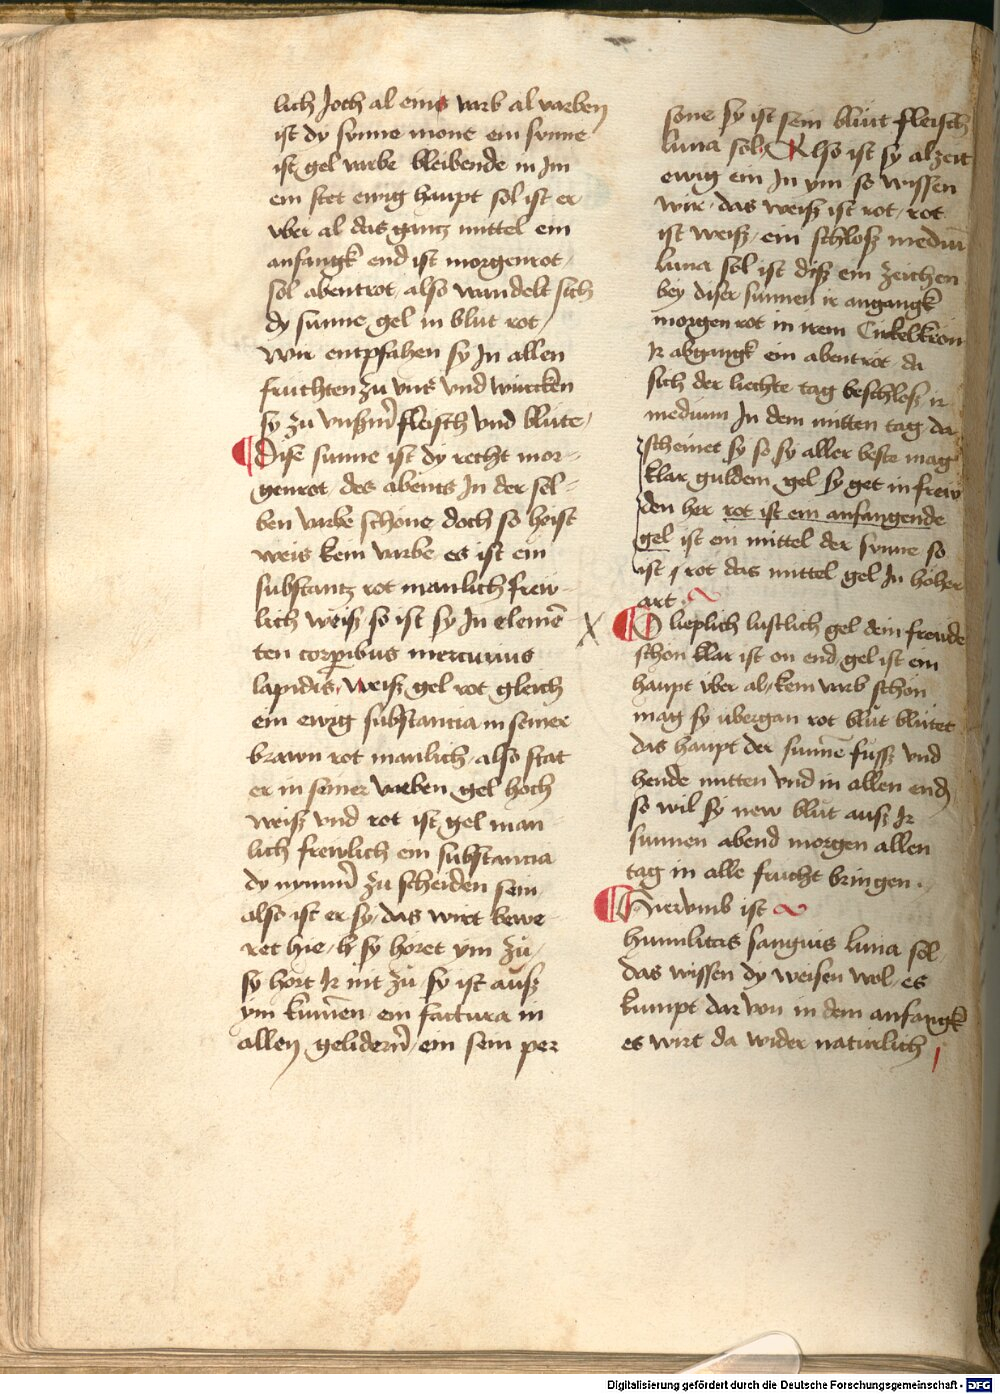 lich Joch al eins varb al varben
ist dy sunne mone ein sunne
ist gel varbe bleibende in Im
ein stet ewig haupt sol ist er
vber al das gantz mittel ein
anfangk end ist morgenrot
sol abentrot also wandelt sich
dy sunne gel in blut rot
wir entpfahen sy In allen
fruchten zu vns vnd wurcken
sy zu vnßerm fleisch vnd blute
Dise sunne ist dy recht mor-
genrot des abents In der sel-
ben varbe schone doch so heist
weis kein varbe es ist ein
substantz rot manlich frew-
lich weiß so ist sy In elemē
ten corporibus mercurius
lapidis weiß gel rot gleich
ein ewig substantia in seiner
brawn rot manlich also stat
er in seiner varben gel hoch
weiß vnd rot ist gel man
lich frewlich ein substantia
dy nymmer zu scheiden sein
also ist er sy das wirt bewe
ret hie sy horet ym zu
sy hort Ir nit zu sy ist auß
ym kumen ein factura in
allen gelidern ein sein per
sone sy ist sein blut fleisch
luna sol Also ist sy alzeit
ewig ein In ym so wissen
wir das weiß ist rot rot
ist weiß ein schloß mediū
luna sol ist diß ein zeichen
bey diser sunnen ir angangk
morgen rot in irem Cirkelkron
Ir abgangk ein abentrot da
sich der liechte tag beschloß ir
medium In dem mitten tag da
scheinet sy so sy aller beste mag
klar guldem gel sy get in frew
den her rot ist ein anfangende
gel ist ein mittel der sunne so
ist rot das mittel gel In hoher
art
O lieplich lustlich gel dein freude
schon klar ist on end gel ist ein
haupt vber al kein varb schon
mag sy vbergan rot blut blutet
das haupt der sunnē fuss vnd
hende mitten vnd in allen end
so wil sy new blut auß Ir
sunnen abend morgen allen
tag in alle frucht bringen
Hiervmb ist
humilitas sanguis luna sol
das wissen dy weisen wol es
kumpt dar von in dem anfangk
es wirt da wider naturlich
Digitalisierung gefördert durch die Deutsche Forschungsgemeinschaft - DFG